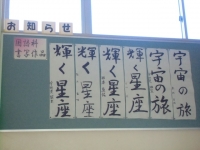 お知らせ
国語科
書写作品
宇宙の旅
宇宙の旅
輝く星座
輝く星座
輝く星座
輝く星座